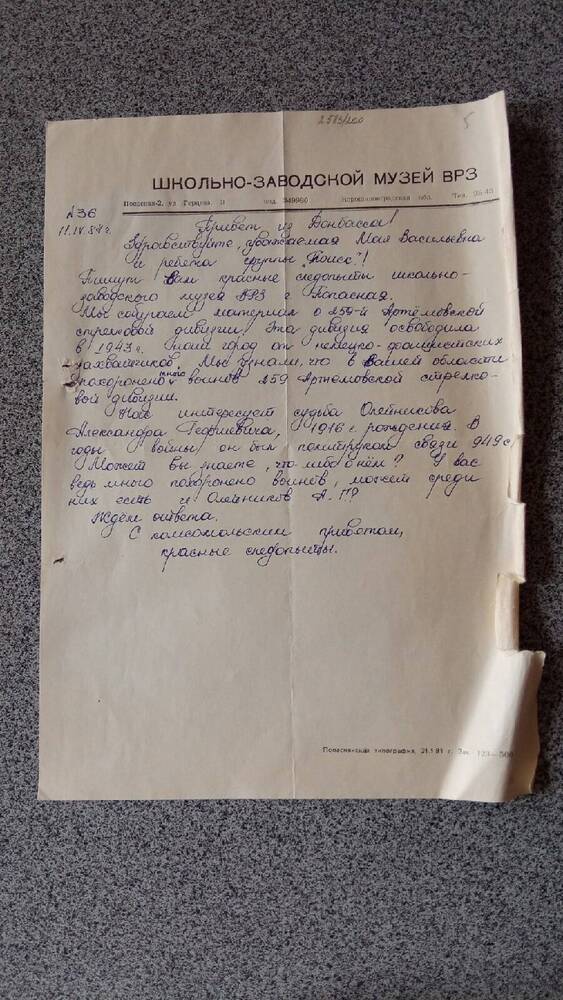 2583/200
5
ШКОЛЬНО-ЗАВОДСКОЙ МУЗЕЙ ВРЗ
Попасная-2, ул Герцена, 349960 Ворошиловградская обл. Тел.
№36
11.IV
Привет из Донбасса!
Здравствуйте, уважаемая Мая Васильевна
и ребята группы „Поиск"!
Пишут Вам красные следопыты школьно-
заводского музея ВРЗ г. Попасная.
Мы собираем материал о 259-й Артёмовской
стрелковой дивизии. Эта дивизия освободила
в 1943 г. наш город от немецко-фашистских
захватчиков. Мы узнали, что в Вашей области
похоронено много воинов 259 Артёмовской стрелко-
вой дивизии.
Нас интересует судьба Олейникова
Александра 1916 г. рождения. В
годы войны он был политруком связи 949
Может Вы знаете, что либо о нём? У вас
ведь много похоронено воинов, может среди
них есть и Олейников А. Г.?
Ждём ответа.
С комсомольским приветом,
красные следопыты.
Попаснянская типография, 21.1.81 г. Зак. 123—500